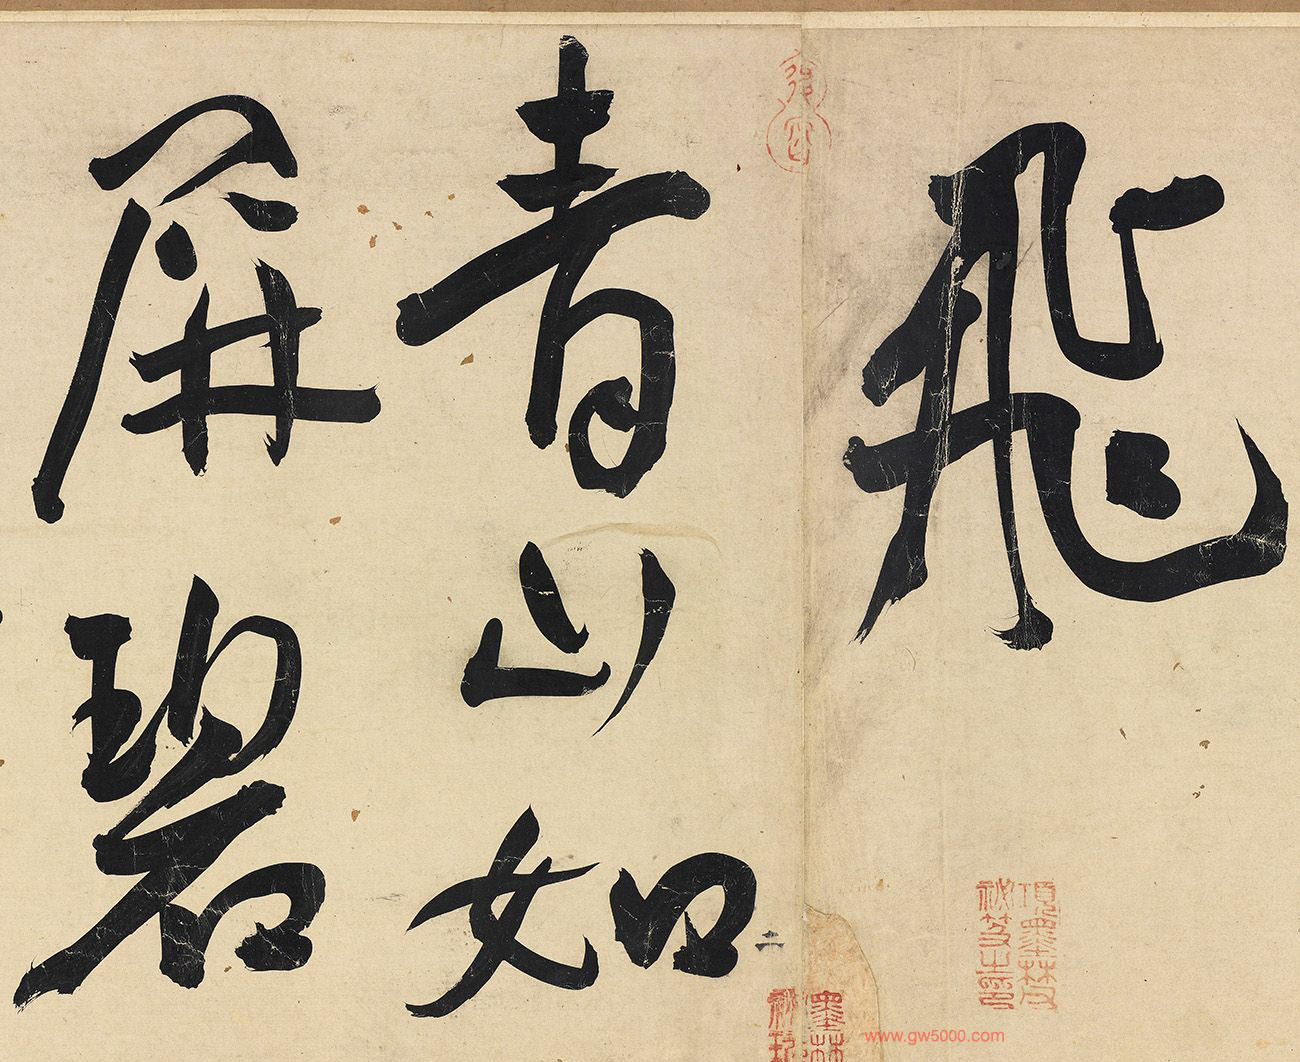 飛
青山如
屏碧
二
項墨林父
祕笈之印
墨林
祕玩
www.gw5000.com